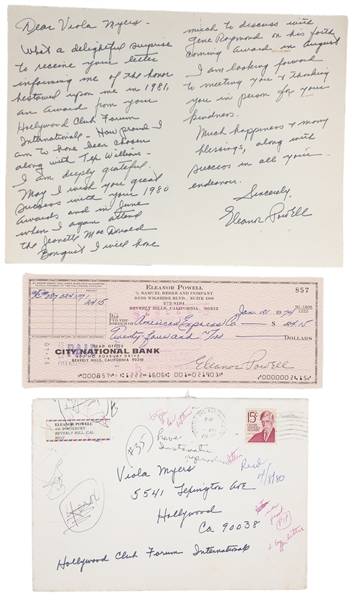 Dear Viola Myers -
What a delightful surprise
to receive your letter
informing me of the honor
bestowed upon me in 1981,
an Award from your
Hollywood Club Forum
International - How proud I
am to have been chosen
along with Tex Williams -
I am deeply grateful.
May I wish you great
success with your 1980
Awards and in June
when I again attend
the Jeanette MacDonald
Banquet I will have
much to discuss with
Gene Raymond on his forth
coming award in August
I am looking forward
to meeting you & thanking
you in person for your
kindness.
Much happiness & many
blessings, along with
success in all your
endeavors.
Sincerely,
Eleanor Powell
ELEANOR POWELL
857
% SAMUEL BERKE AND COMPANY
BEVERLY HILLS, CALIFORNIA 90212
Jan 21 1974
American Express Co
$24.15
DOLLARS
CITY NATIONAL BANK
BEVERLY HILLS, CALIFORNIA 90210
Eleanor Powell
ELEANOR POWELL
BEVERLY HILLS, CAL.
15c
#35
Viola Myers
5541 Lexington Ave
Hollywood
Ca 90038
Hollywood Club Forum International